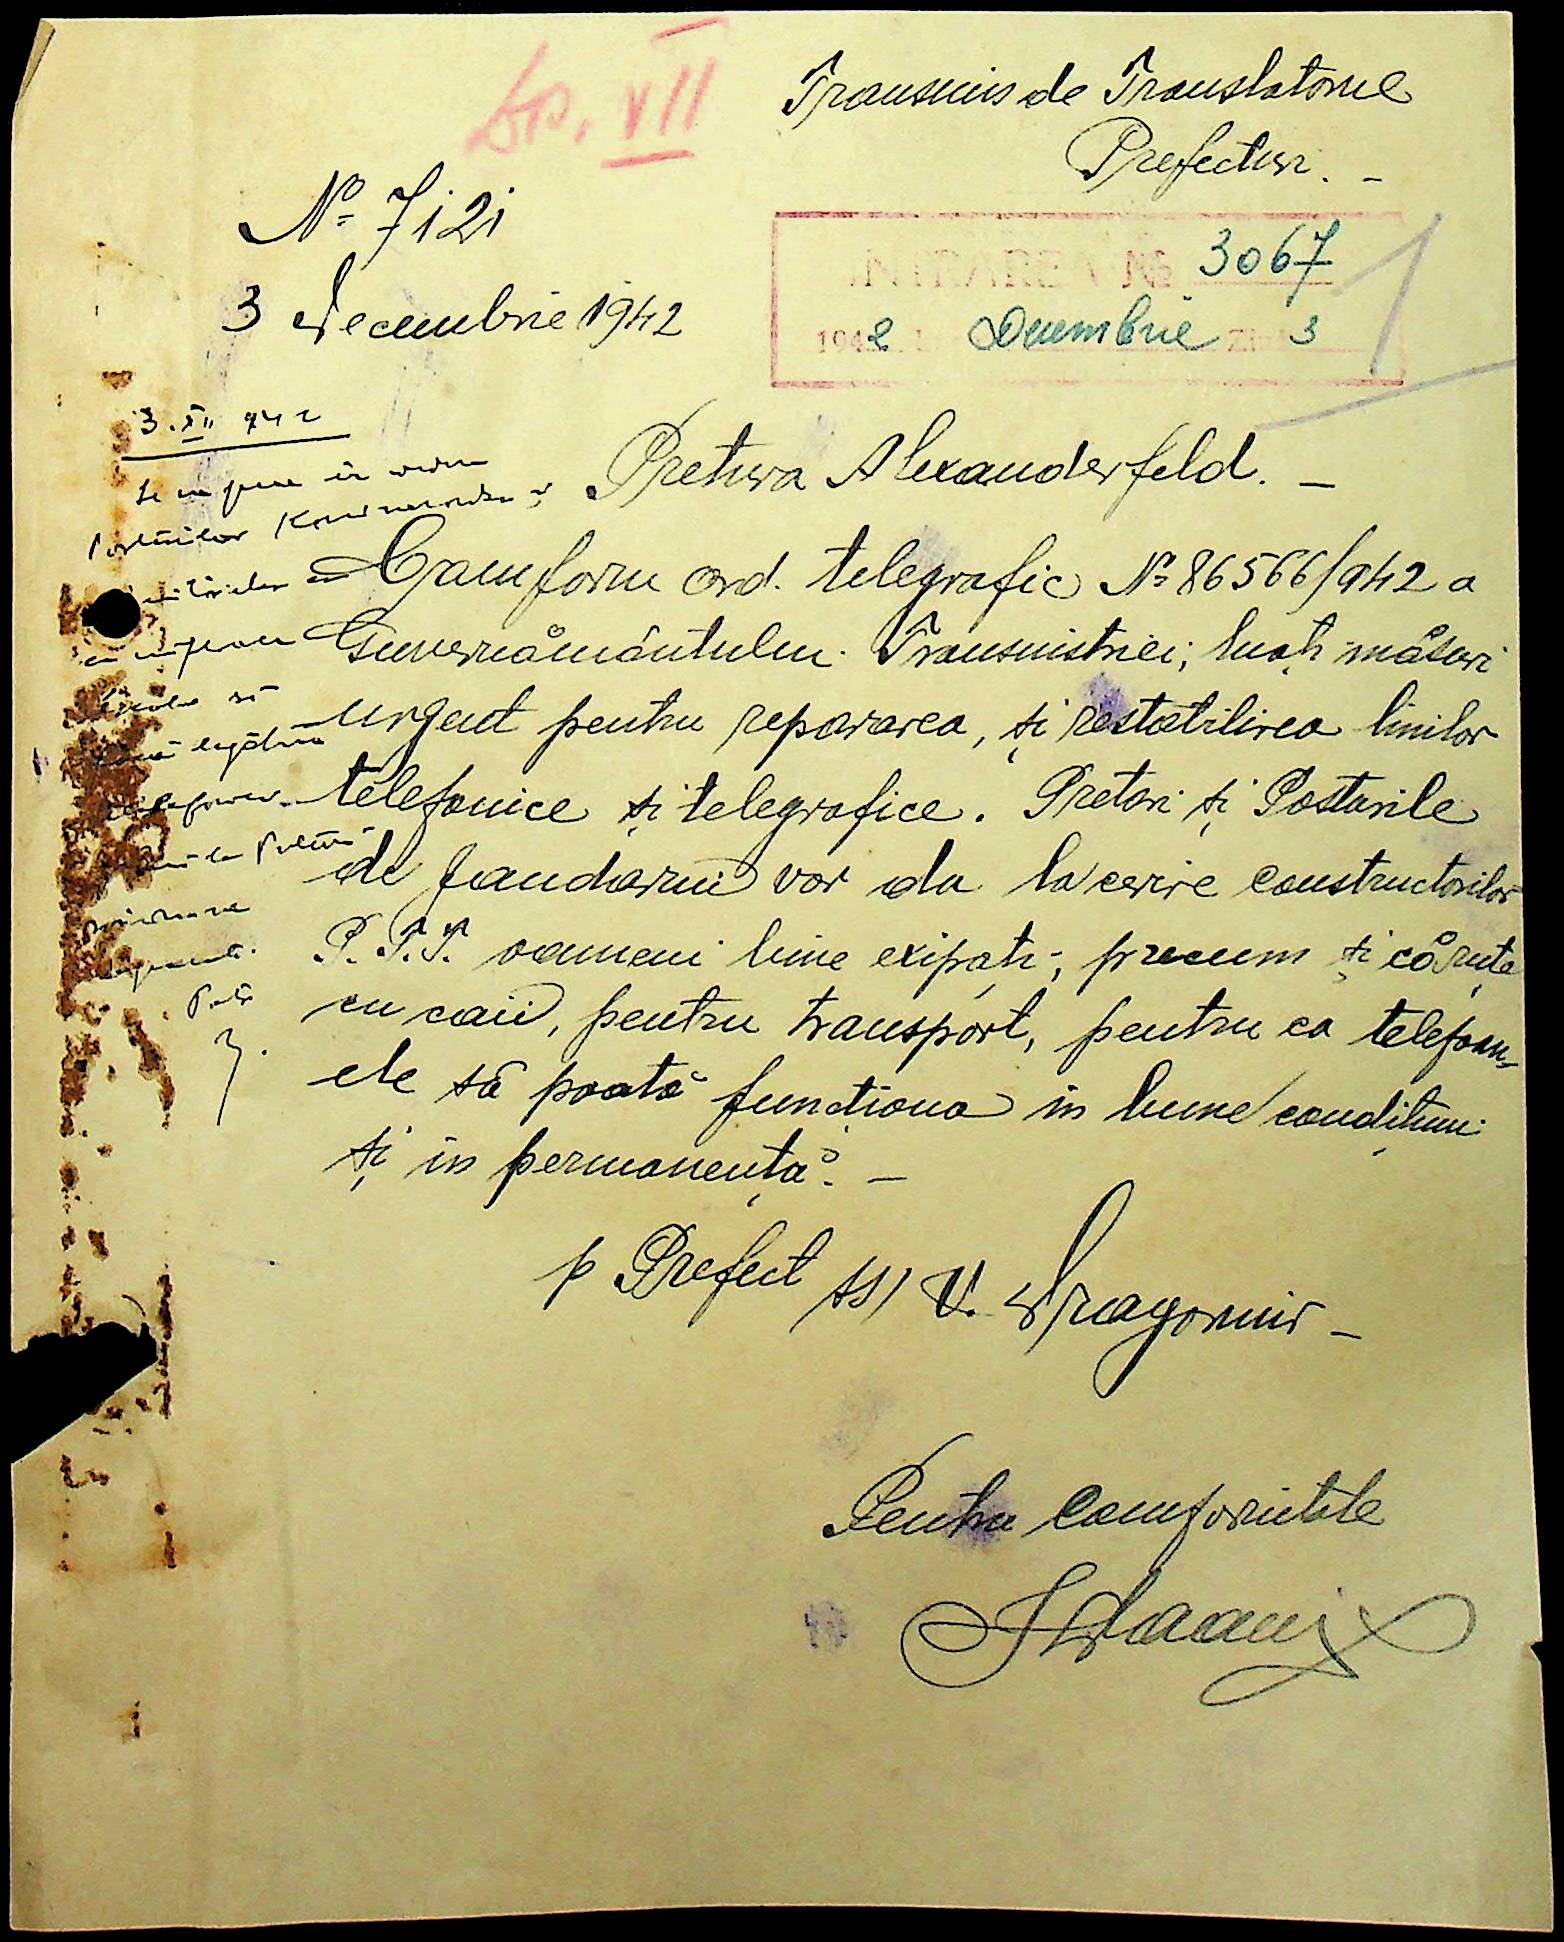 Dos. VII
Transmis de Translatorul
Prefectur. -
No 7121
3 Decembrie 1942
INTRARE No 3067
1942 Decembrie Ziua 3
3.XII 942
Se va pune în vederea
Posturilor
legătura
Pretura Alexanderfeld. -
Comform ord. telegrafic No 86566/942 a
Guvernământului Transnistriei; luați măsuri
urgent pentru repararea, și restabilirea liniilor
telefonice și telegrafice. Pretori și Posturile
de jandarmi vor da la cerire constructorilor
P.T.T. oameni bine exipați; precum și căruțe
cu caii, pentru transport, pentru ca telefoan-
ele să poată funcționa în bune condițiuni
și in permanență. -
p Prefect ss) V. Dragomir -
Pentru comformitate